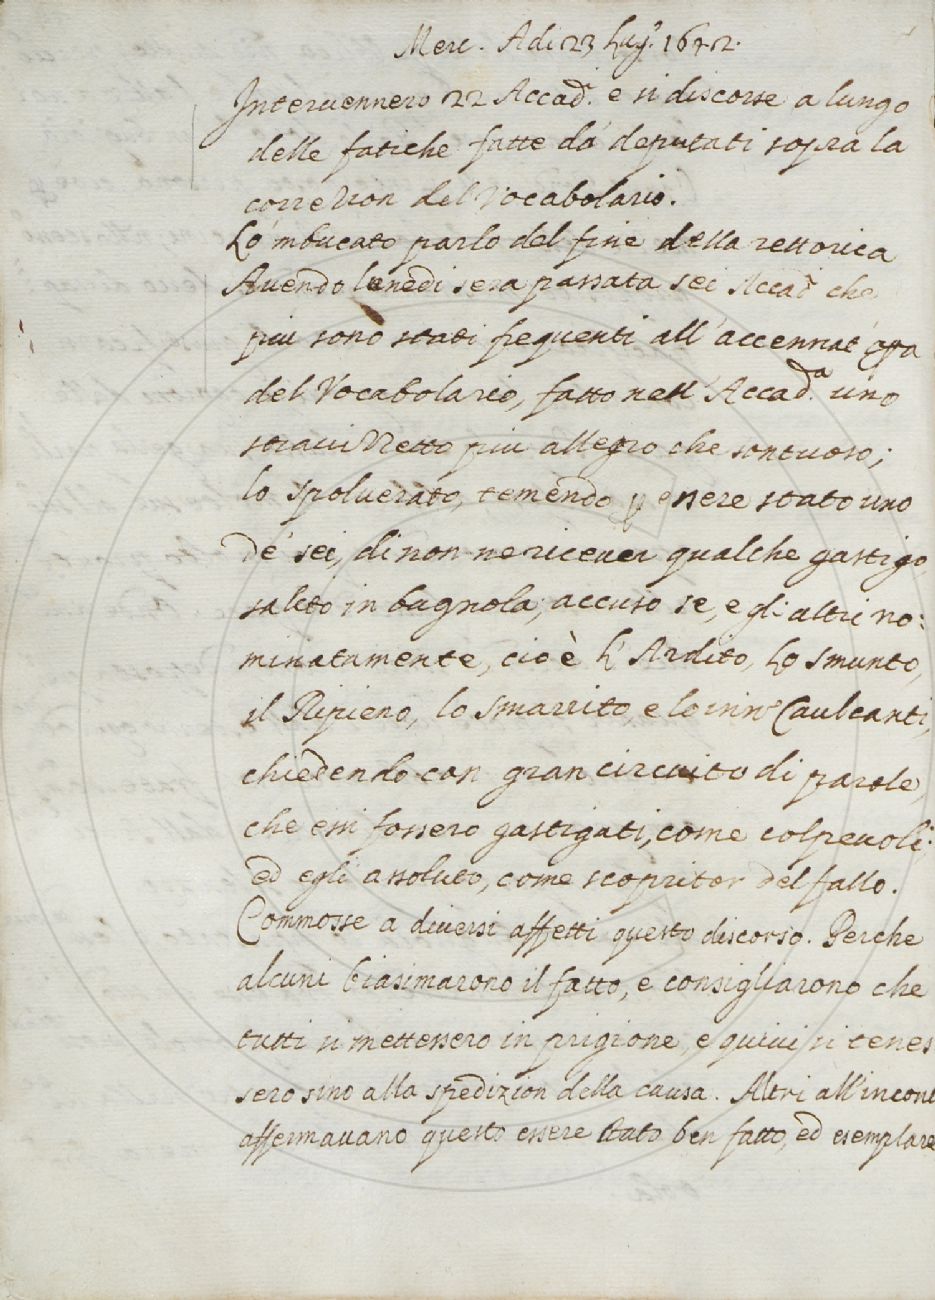 Merc. Adi 23 Lug.° 1642.
Interuennero 22 Accad.ⁱ e si discorse a lungo
delle fatiche fatte da' deputati sopra la
correzion del Vocabolario.
Lo 'mbucato parlo del fine della rettorica
Auendo lunedi sera passata sei Accad.ⁱ che
piu sono stati frequenti all' accennat' opa
del Vocabolario, fatto nell' Accad.ª uno
strauizzetto piu allegro che sontuoso;
lo spoluerato, temendo p essere stato uno
de' sei, di non ne riceuer qualche gastigo,
salito in bugnola, accuso se, e gli altri no:
minatamente, cioè l' Ardito, lo smunto,
il Ripieno, lo smarrito, e lo inn.° Caualcanti,
chiedendo con gran circuito di parole,
che essi fossero gastigati, come colpeuoli;
ed egli assoluto, come scopritor del fallo.
Commosse a diuersi affetti questo discorso. Perche
alcuni biasimarono il fatto, e consigliarono che
tutti si mettessero in prigione, e quiui si tenes
sero sino alla spedizion della causa. Altri all'incont
affermauano questo essere stato ben fatto, ed esemplare